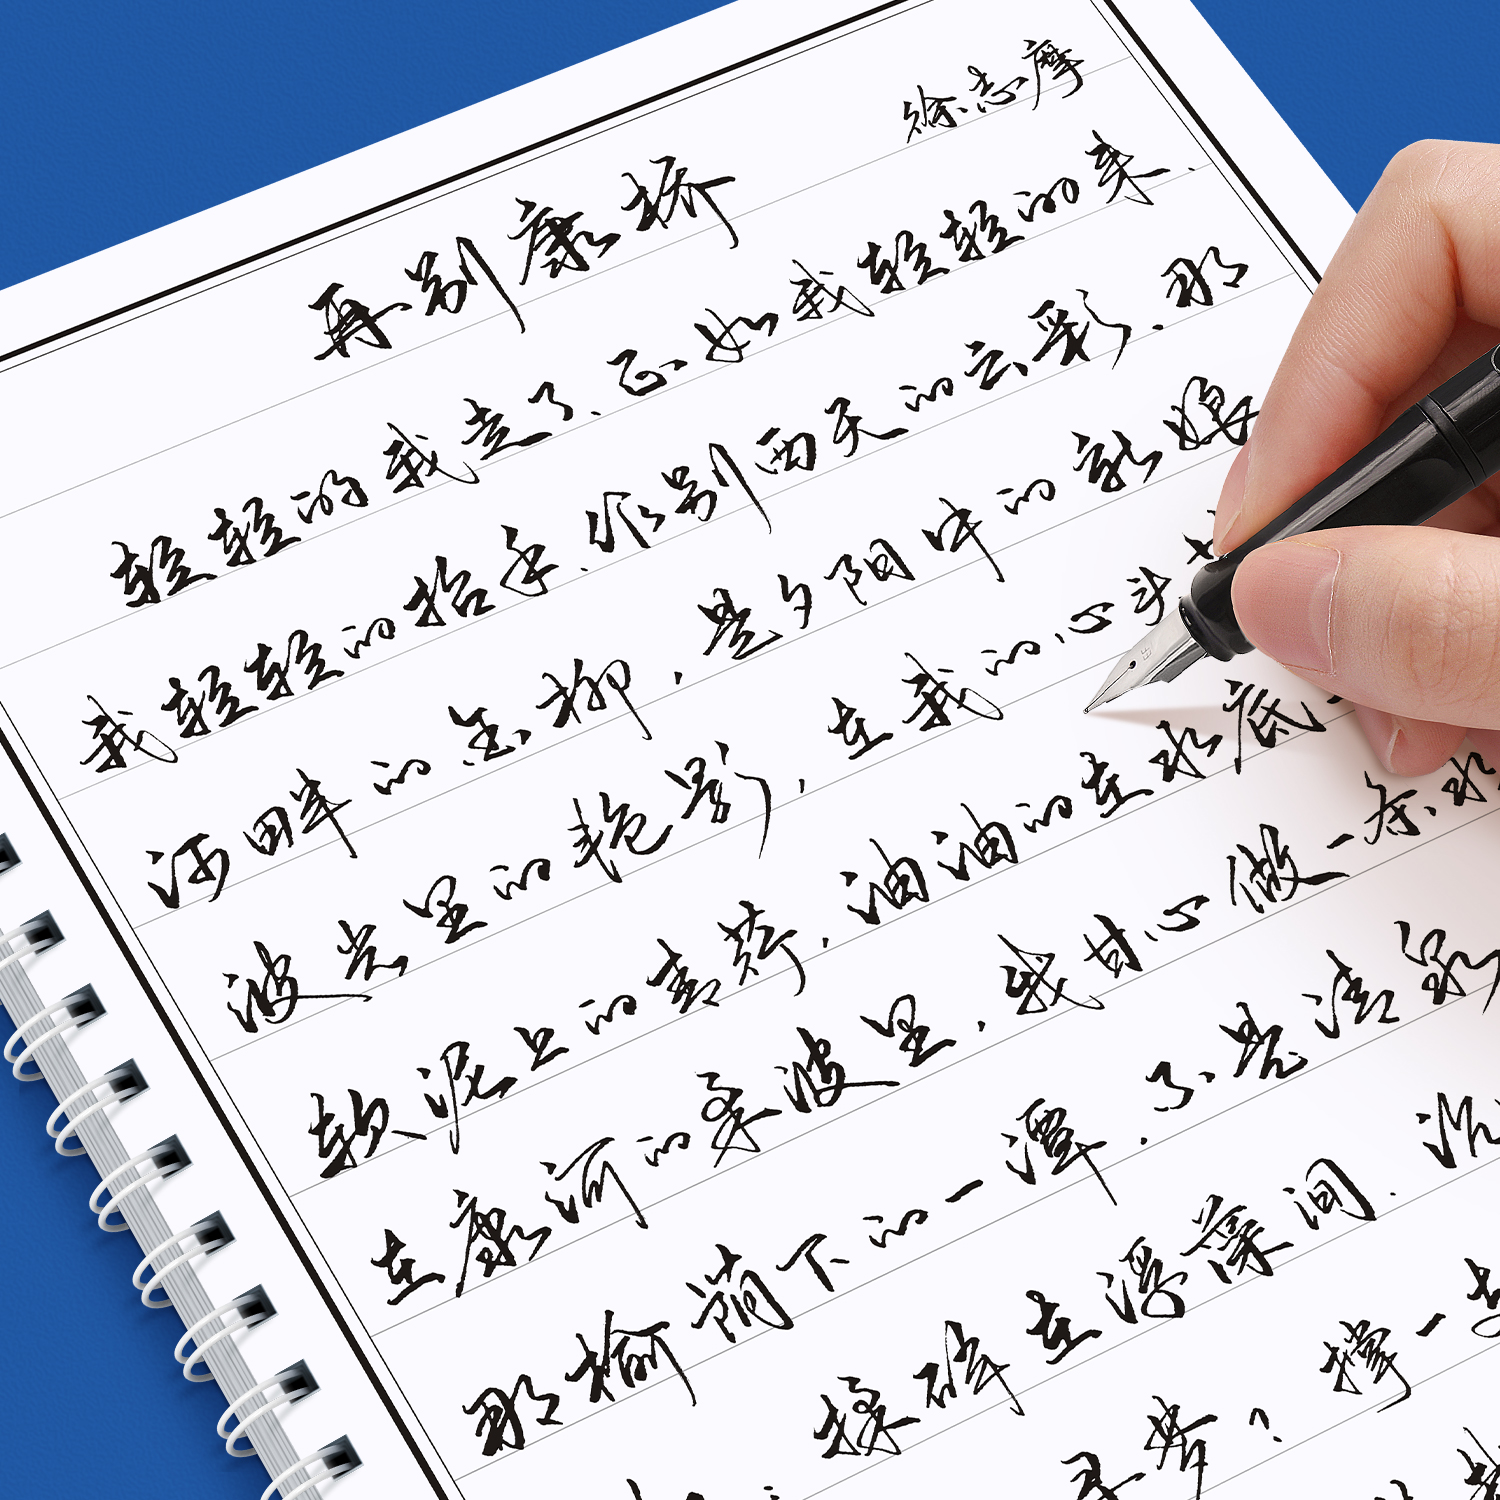 徐志摩
再别康桥
轻轻的我走了.正如我轻轻的来.
我轻轻的招手.作别西天的云彩.那
河畔的金柳,是夕阳中的新娘
波光里的艳影,在我的心头
软泥上的青荇,油油的在水底
在康河的柔波里,我甘心做一条水
那榆荫下的一潭,不是清泉
揉碎在浮藻间.沉
寻梦?撑一支